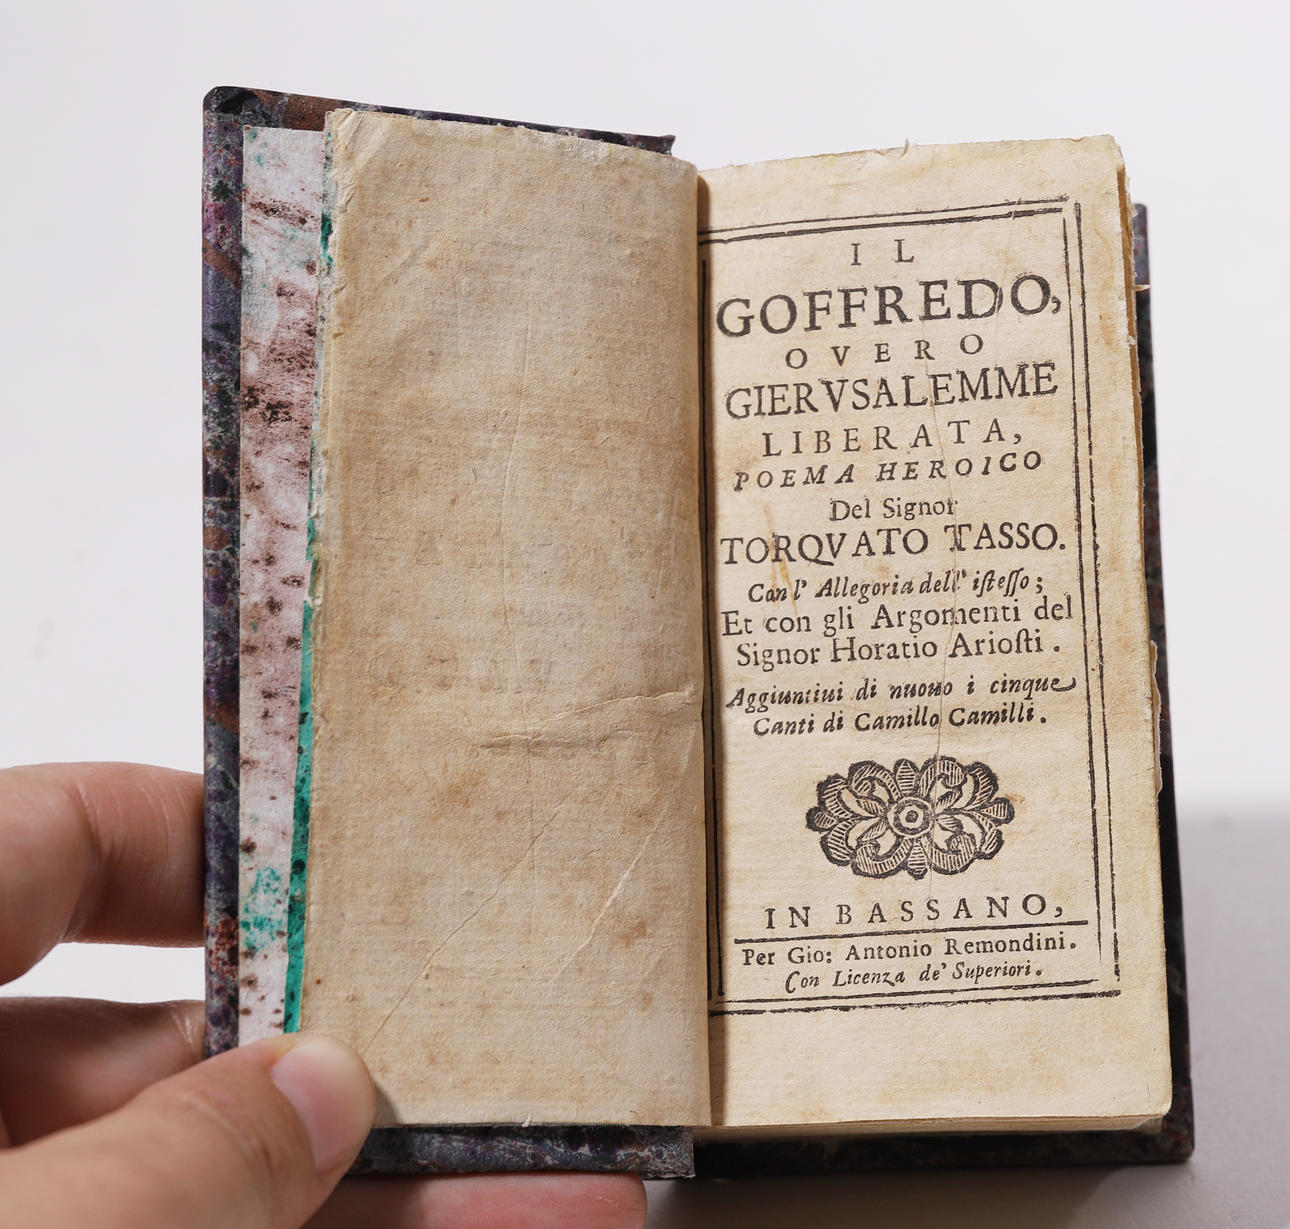 IL
GOFFREDO,
OVERO
GIERVSALEMME
LIBERATA,
POEMA HEROICO
Del Signor
TORQVATO TASSO.
Con l' Allegoria dell' iſteſſo;
Et con gli Argomenti del
Signor Horatio Arioſti.
Aggiuntiui di nuouo i cinque
Canti di Camillo Camilli.
IN BASSANO,
Per Gio: Antonio Remondini.
Con Licenza de' Superiori.